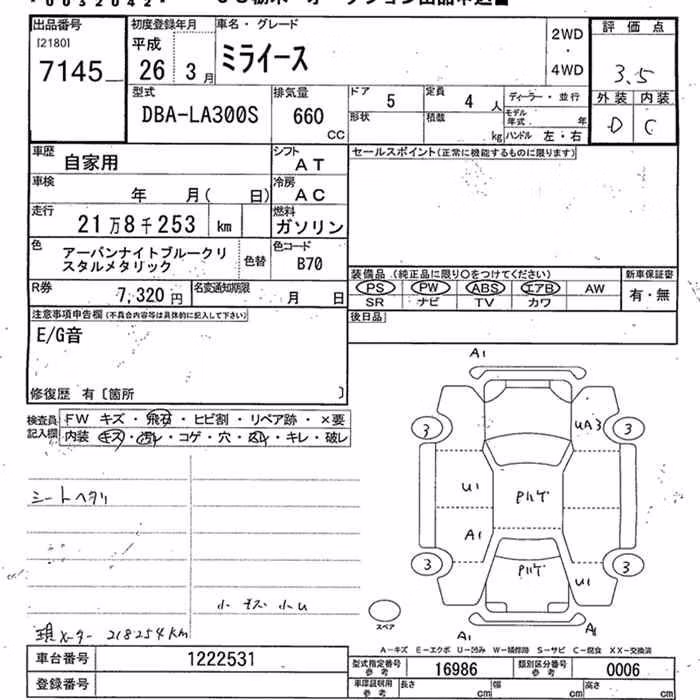 出品番号
[2180]
7145
初度登録年月
平成
26 3月
車名・グレード
ミライース
2WD
・
4WD
評価点
3.5
外装 内装
D C
型式
DBA-LA300S
排気量
660
CC
ドア
5
定員
4 人
ディーラー・並行
形状
積載
kg
モデル年式 年
ハンドル 左・右
車歴
自家用
シフト
AT
セールスポイント(正常に機能するものに限ります)
車検
年 月( 日)
冷房
AC
走行
21万8千253 km
燃料
ガソリン
色
アーバンナイトブルークリ
スタルメタリック
色替
色コード
B70
装備品 (純正品に限り○をつけてください)
新車保証書
PS PW ABS エアB AW
有・無
SR ナビ TV カワ
R券
7,320 円
名変通知期限
月 日
後日品
注意事項申告欄(不具合内容等は具体的に記入して下さい)
E/G音
修復歴 有〔箇所 〕
検査員
記入欄
FW キズ・飛石・ヒビ割・リペア跡・×要
内装 キズ・汚レ・コゲ・穴・凹レ・キレ・破レ
シートヘタリ
小キズ小U
現メーター 218254km
A1
3
UA3
3
U1
Pハゲ
A1
3
Pハゲ
U1
3
A1
スペア
A-キズ E-エクボ U-凹み W-補修跡 S-サビ C-腐食 XX-交換済
車台番号
1222531
型式指定番号
参考
16986
類別区分番号
参考
0006
登録番号
車庫証明用
参考
長さ
cm
幅
cm
高さ
cm